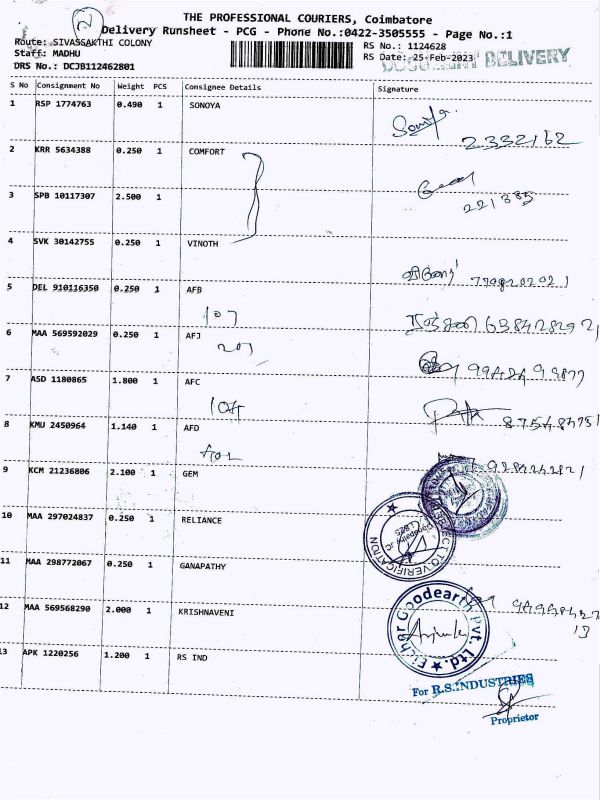 THE PROFESSIONAL COURIERS, Coimbatore
Delivery Runsheet - PCG - Phone No.:0422-3505555 - Page No.:1
Route: SIVASSAKTHI COLONY RS No.: 1124628
Staff: MADHU RS Date: 25-Feb-2023
DOCUMENT DELIVERY
DRS No.: DCJB112462801
S No Consignment No Weight PCS Consignee Details Signature
1 RSP 1774763 0.490 1 SONOYA
2332162
2 KRR 5634388 0.250 1 COMFORT
3 SPB 10117307 2.500 1
221385
4 SVK 30142755 0.250 1 VINOTH
5 DEL 910116350 0.250 1 AFB
107
6 MAA 569592029 0.250 1 AFJ
201
7 ASD 1180865 1.800 1 AFC
104
8 KMU 2450964 1.140 1 AFD
9 KCM 21236806 2.100 1 GEM
10 MAA 297024837 0.250 1 RELIANCE
SUBJECT TO VERIFICATION
11 MAA 298772067 0.250 1 GANAPATHY
12 MAA 569568290 2.000 1 KRISHNAVENI
Eichar Goodearth Pvt. Ltd.
13 APK 1220256 1.200 1 RS IND
For R.S.INDUSTRIES
Proprietor